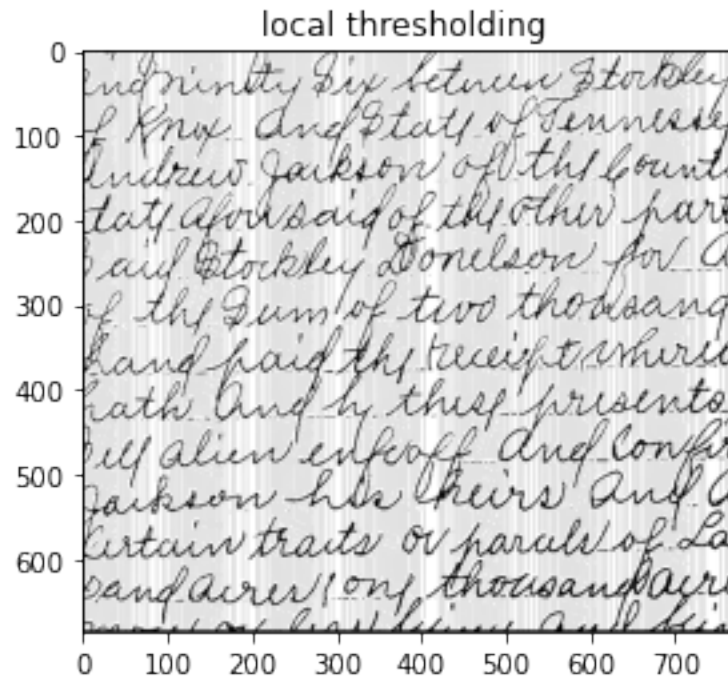 local thresholding
0
100
200
300
400
500
600
and ninety Six between Stockley
of Knox and State of Tennessee
Andrew Jackson of the County
State aforesaid of the other part
Said Stockley Donelson for a
of the Sum of two thousand
hand paid the receipt where
hath and by these presents
Sell alien enfeoff and Confir
Jackson his heirs and a
Certain tracts or parcels of La
sand acres, one thousand acre
0 100 200 300 400 500 600 700